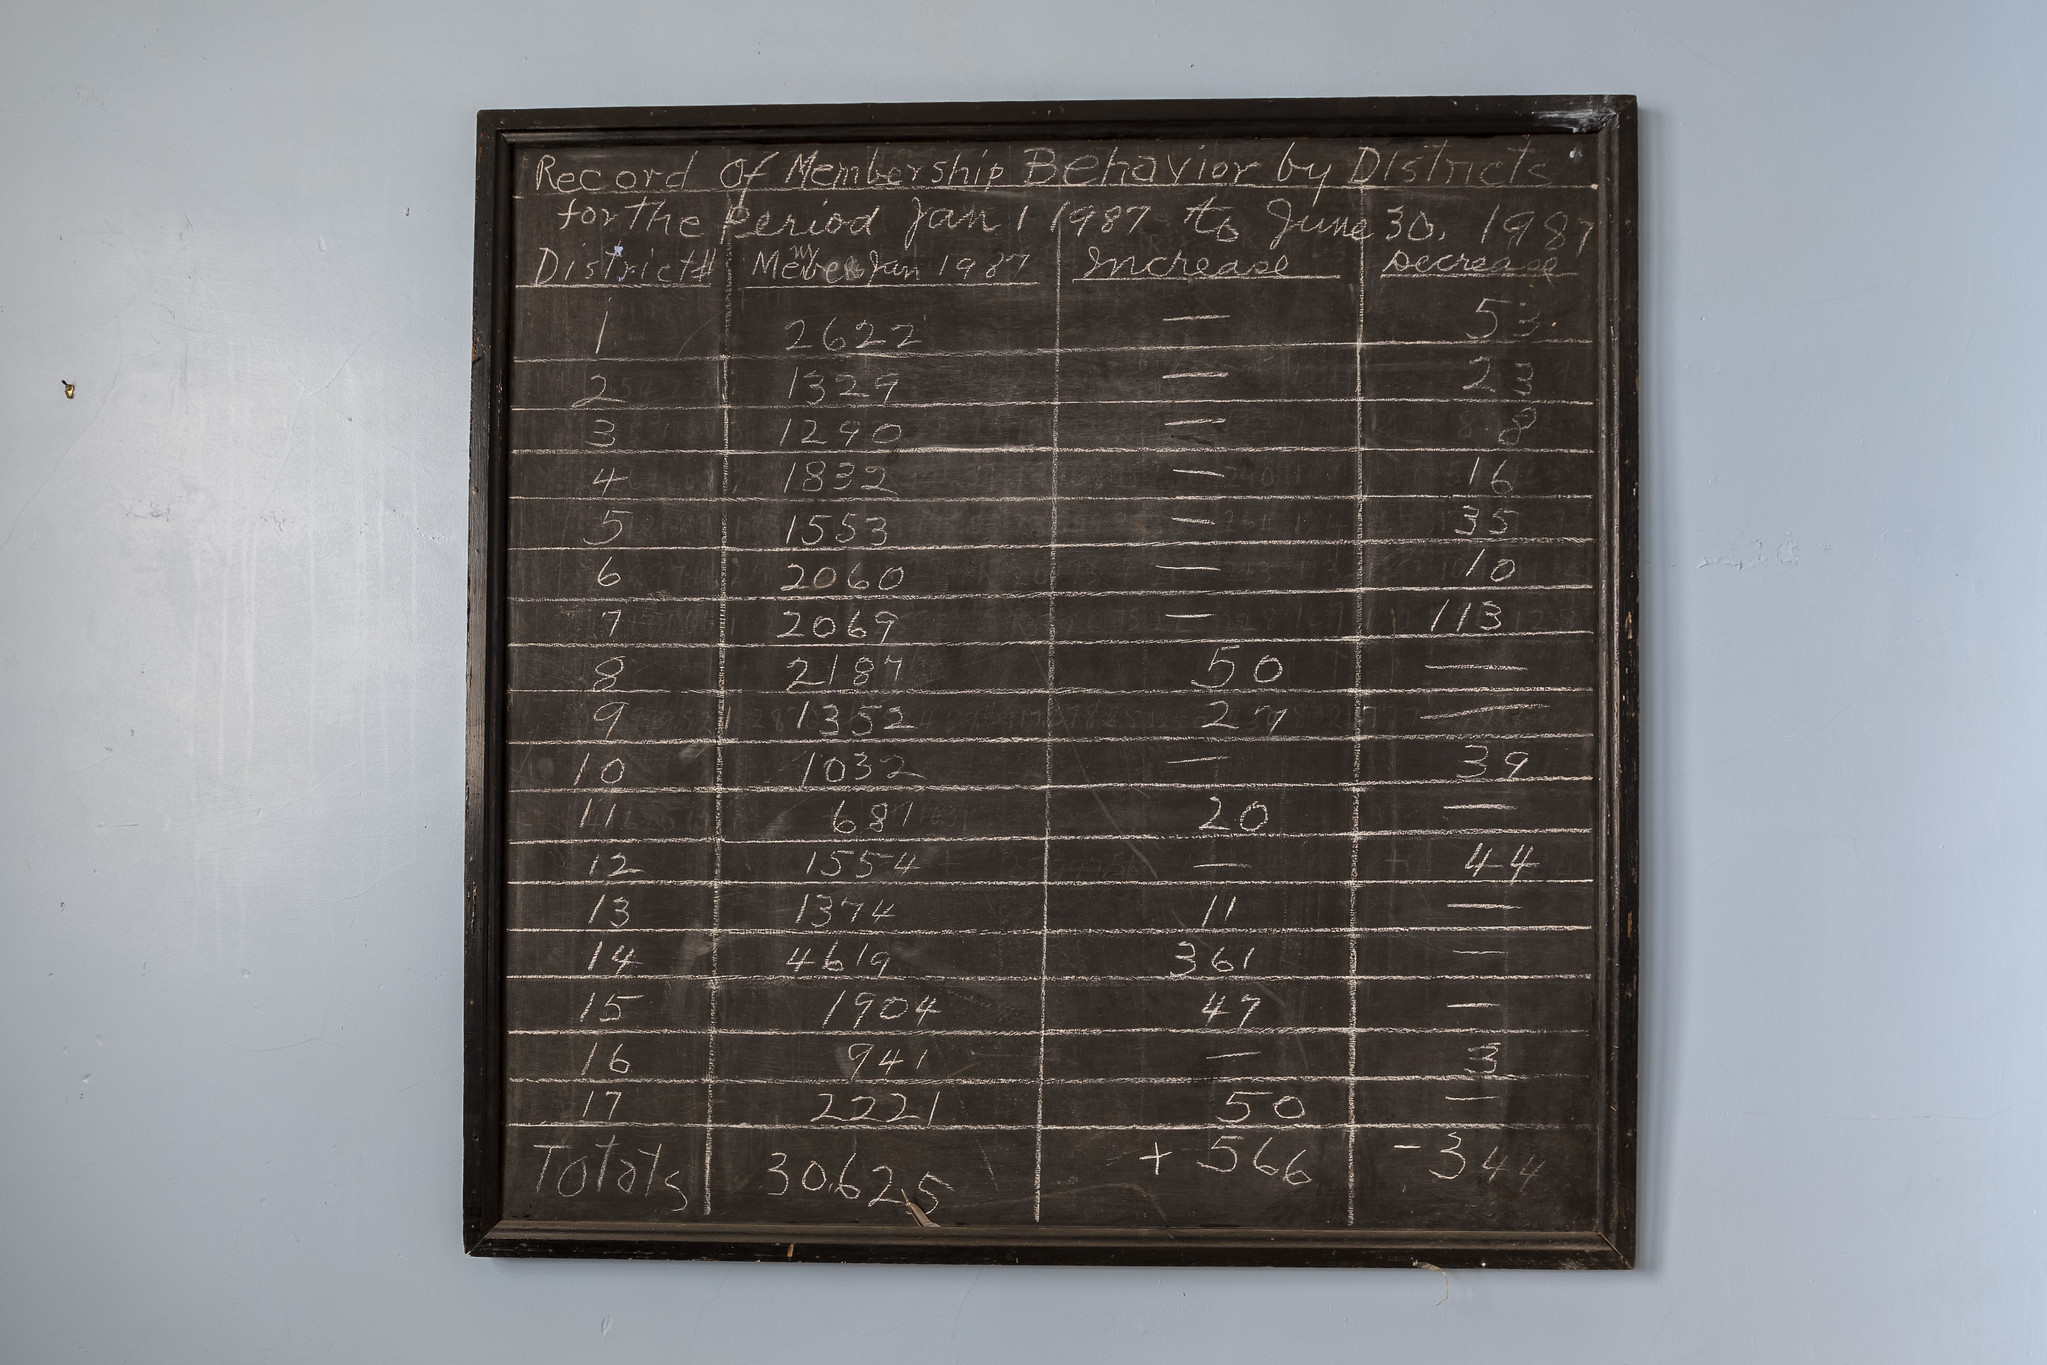 Record Of Membership Behavior by Districts
for the period Jan 1 1987 to June 30, 1987
District# Member Jan 1987 Increase Decrease
1 2622 — 53
2 1329 — 23
3 1290 — 8
4 1832 — 16
5 1553 — 35
6 2060 — 10
7 2069 — 113
8 2187 50 —
9 1352 27 —
10 1032 — 39
11 687 20 —
12 1554 — 44
13 1374 11 —
14 4619 361 —
15 1904 47 —
16 941 — 3
17 2221 50 —
Totals 30,625 + 566 - 344